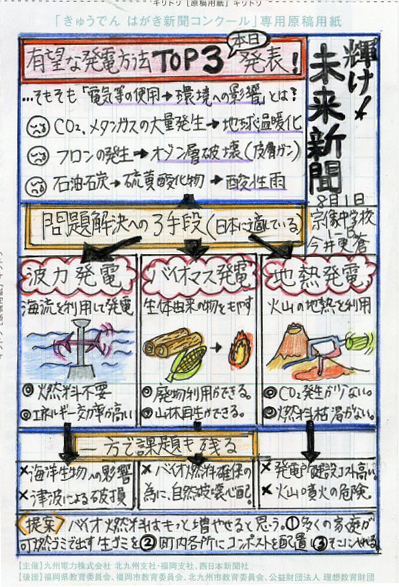 キリトリ [原稿用紙] キリトリ
「きゅうでん はがき新聞コンクール」専用原稿用紙
輝け!
未来新聞
8月1日
宗像中学校
有望な発電方法TOP3 本日 発表!
…そもそも「電気等の使用→環境への影響」とは?
CO₂、メタンガスの大量発生→地球温暖化
フロンの発生→オゾン層破壊(皮膚ガン)
石油石炭→硫黄酸化物→酸性雨
問題解決への3手段(日本に適している)
波力発電
海流を利用して発電
◎燃料不要
◎エネルギー効率が高い
バイオマス発電
生体由来の物をもやす
◎廃物利用ができる。
◎山林再生ができる。
地熱発電
火山の地熱を利用
◎CO₂発生が少ない。
◎燃料枯渇がない。
一方で課題も残る
×海洋生物への影響
×津波による破損
×バイオ燃料確保の
為に、自然破壊心配。
×発電所建設コスト高い。
×火山噴火の危険。
提案 バイオ燃料はもっと増やせると思う。①多くの家庭が
可燃ごみで出す生ごみを②町内各所にコンポストを配置③そこに
【主催】九州電力株式会社 北九州支社・福岡支社、西日本新聞社
【後援】福岡県教育委員会、福岡市教育委員会、北九州市教育委員会、公益財団法人 理想教育財団